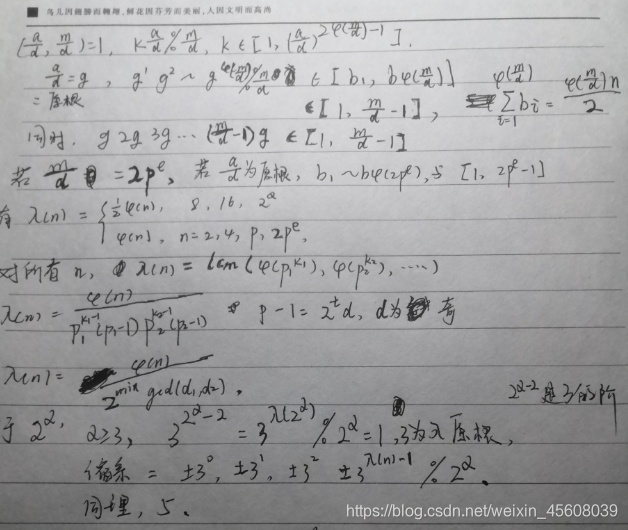 鸟儿因翅膀而翱翔,鲜花因芬芳而美丽,人因文明而高尚
(a/d, m/d)=1, k a/d % m/d, k ∈ [1, (a/d)^{2φ(m/d)-1}].
a/d = g, g¹ g² ~ g^{φ(m/d)} % m/d ∈ [b₁, bφ(m/d)]
=原根 ∈ [1, m/d -1], φ(m/d) Σ i=1 bᵢ = φ(m/d)n / 2
同时, g 2g 3g ··· (m/d -1)g ∈ [1, m/d -1]
若 m/d = 2pᵉ, 若 a/d 为原根, b₁ ~ bφ(2pᵉ), 与 [1, 2pᵉ-1]
有 λ(n) = { ½φ(n), 8, 16, 2^α
φ(n), n=2, 4, p, 2pᵉ,
对所有 n, λ(n) = lcm (φ(p₁^{k₁}), φ(p₂^{k₂}), ····)
λ(n) = φ(n) / p₁^{k₁-1}(p₁-1) p₂^{k₂-1}(p₂-1) p-1 = 2^t d, d为奇
λ(n) = φ(n) / 2^{min} gcd(d₁,d₂),
2^{α-2} 是3的阶
于 2^α, α≥3, 3^{2^{α-2}} = 3^{λ(2^α)} % 2^α = 1, 3为λ原根,
缩系 = ±3⁰, ±3¹, ±3² ±3^{λ(n)-1} % 2^α.
同理, 5.
https://blog.csdn.net/weixin_45608039